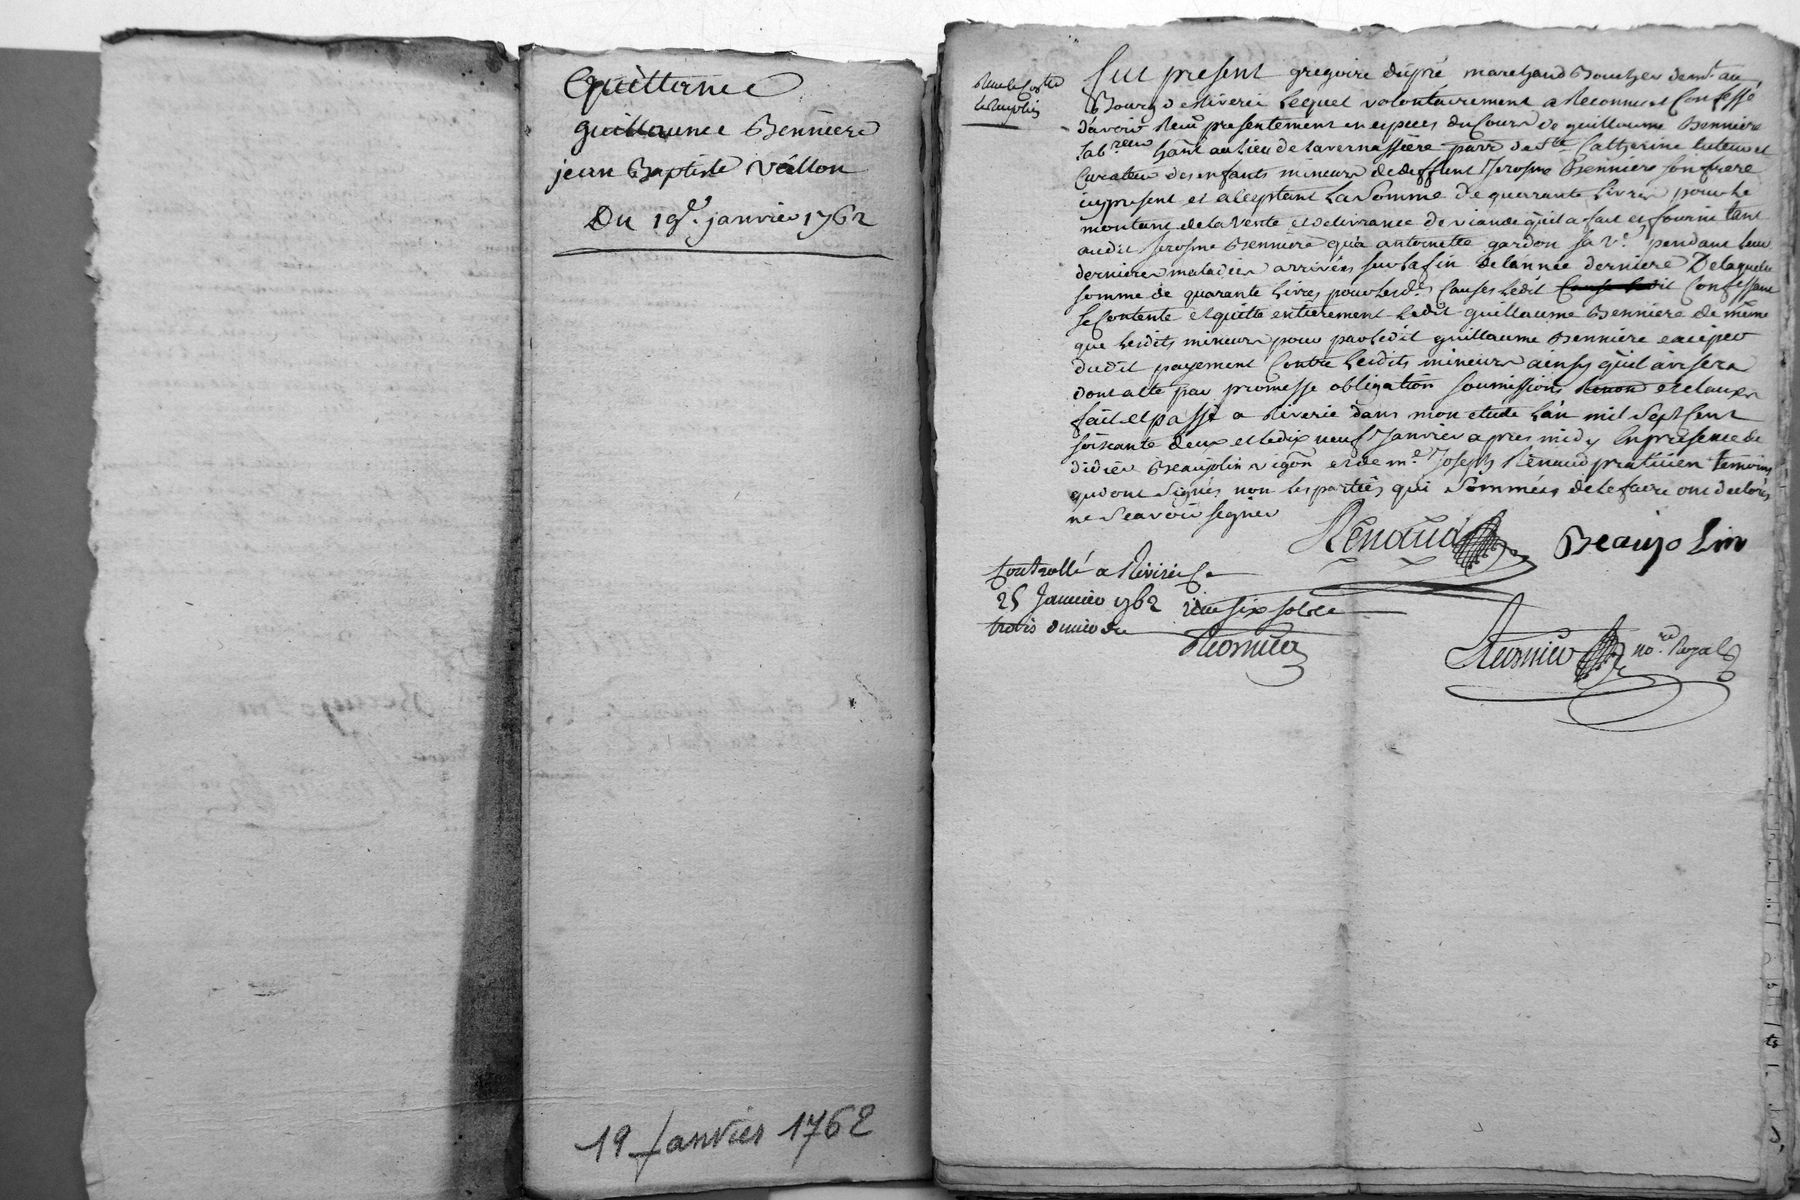 Quittance
guillaume Benniere
jean Baptiste Veillon
Du 19e. janvier 1762
19 Janvier 1762
fut present gregoire dupré marchand Boucher demt. au
Bourg de Riverie lequel volontairement a Reconnu et Confessé
d'avoir Reçu presentement en especes du Cours de guillaume Bennière
labreur habt au lieu de lavernassiere parr. de Ste Catherine tuteur et
Curateur des enfants mineurs de deffunt Jerosme Bennière son frere
icy present et acceptant la Somme de quarante livres pour le
montant de la Vente et delivrance de viande qu'il a fait et fournie tant
audit Jerosme Bennière qu'a antoinette gardon sa ve. pendant leur
derniere maladies arrivées sur la fin de l'année derniere De laquelle
somme de quarante livres pour lesds. Causes ledit Confessant
se Contente et quitte entierement ledit guillaume Bennière de même
que lesdits mineurs pour par ledit guillaume Bennière
dudit payement Contre lesdits mineurs ainsy qu'il avisera
dont acte par promesse obligation soumissions Renon et clauses
fait et passé a Riverie dans mon etude l'an mil Sept Cent
soixante deux et le dix neuf Janvier apres midy En presence de
didier Beaujolin vigon et de me. Joseph Renaud praticien temoins
qui ont Signés non les parties qui Sommées de le faire ont declarés
ne Scavoir signer
Renaud Beaujolin
Controllé a Riverie le
25 Janvier 1762 six sols
trois deniers
no.re Royal